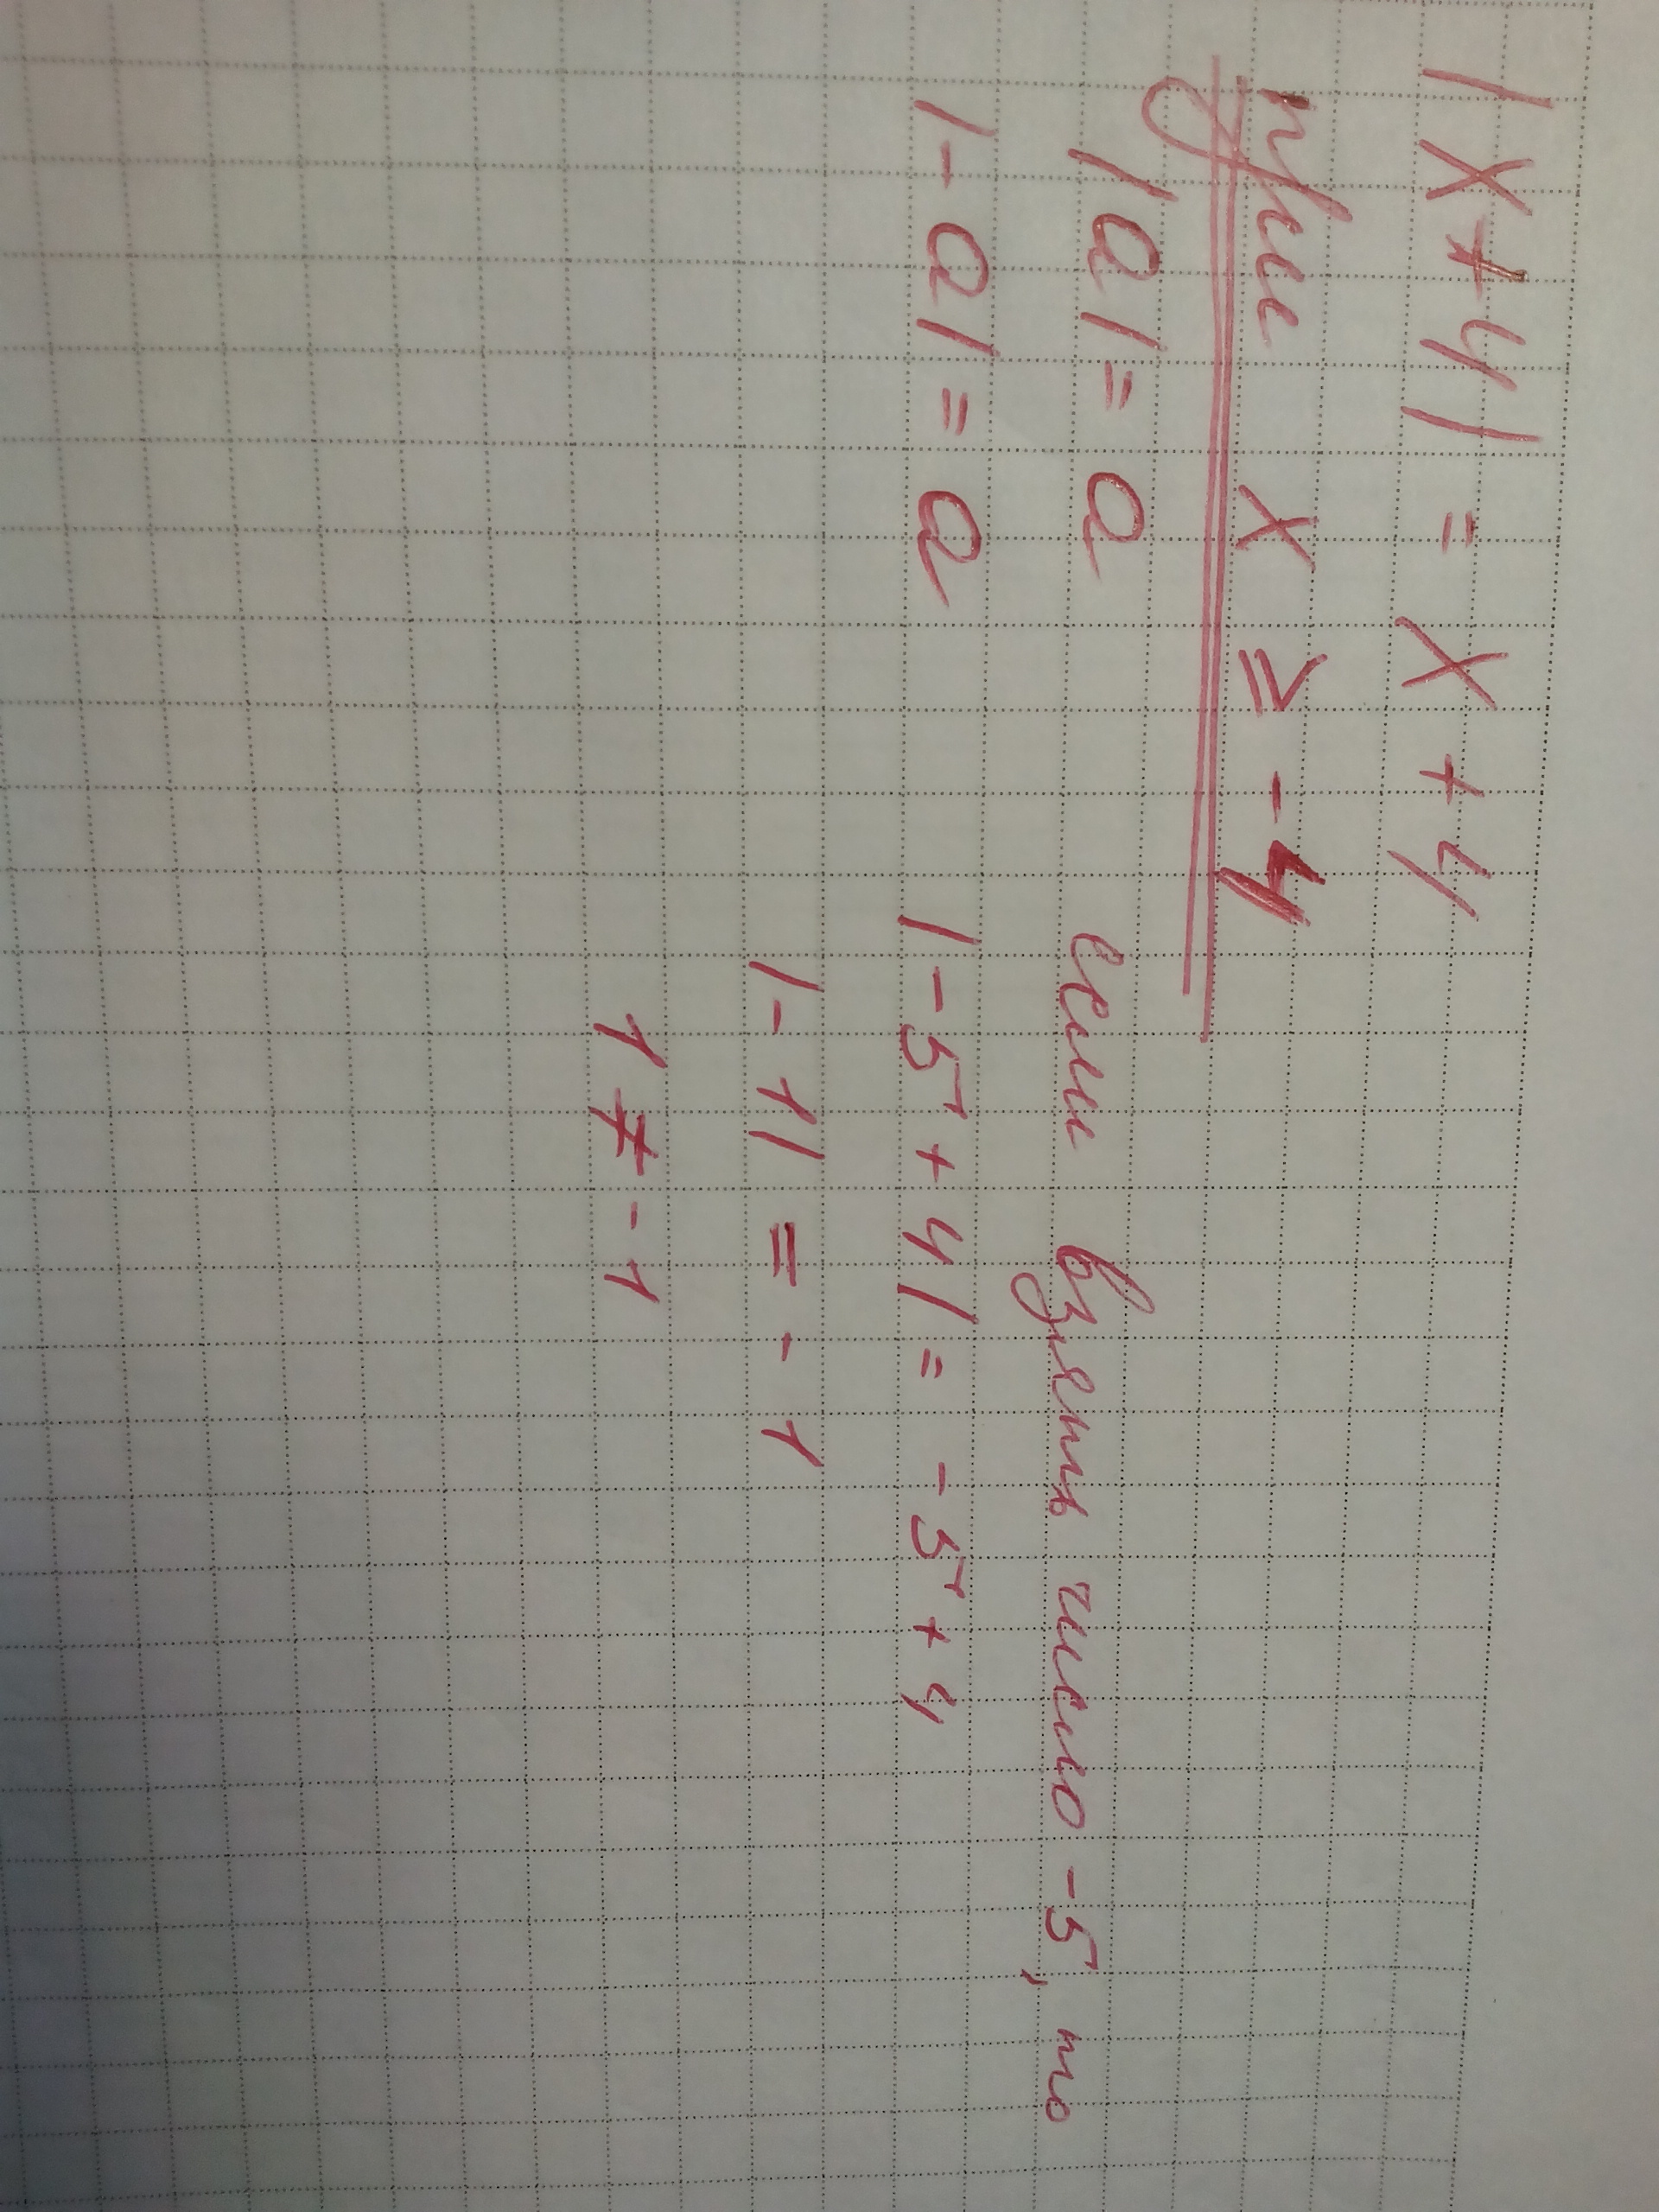 |x+4| = x+4
при x ≥ -4
|a| = a
|-a| = a
если взять число -5, то
|-5+4| = -5+4
|-1| = -1
1 ≠ -1